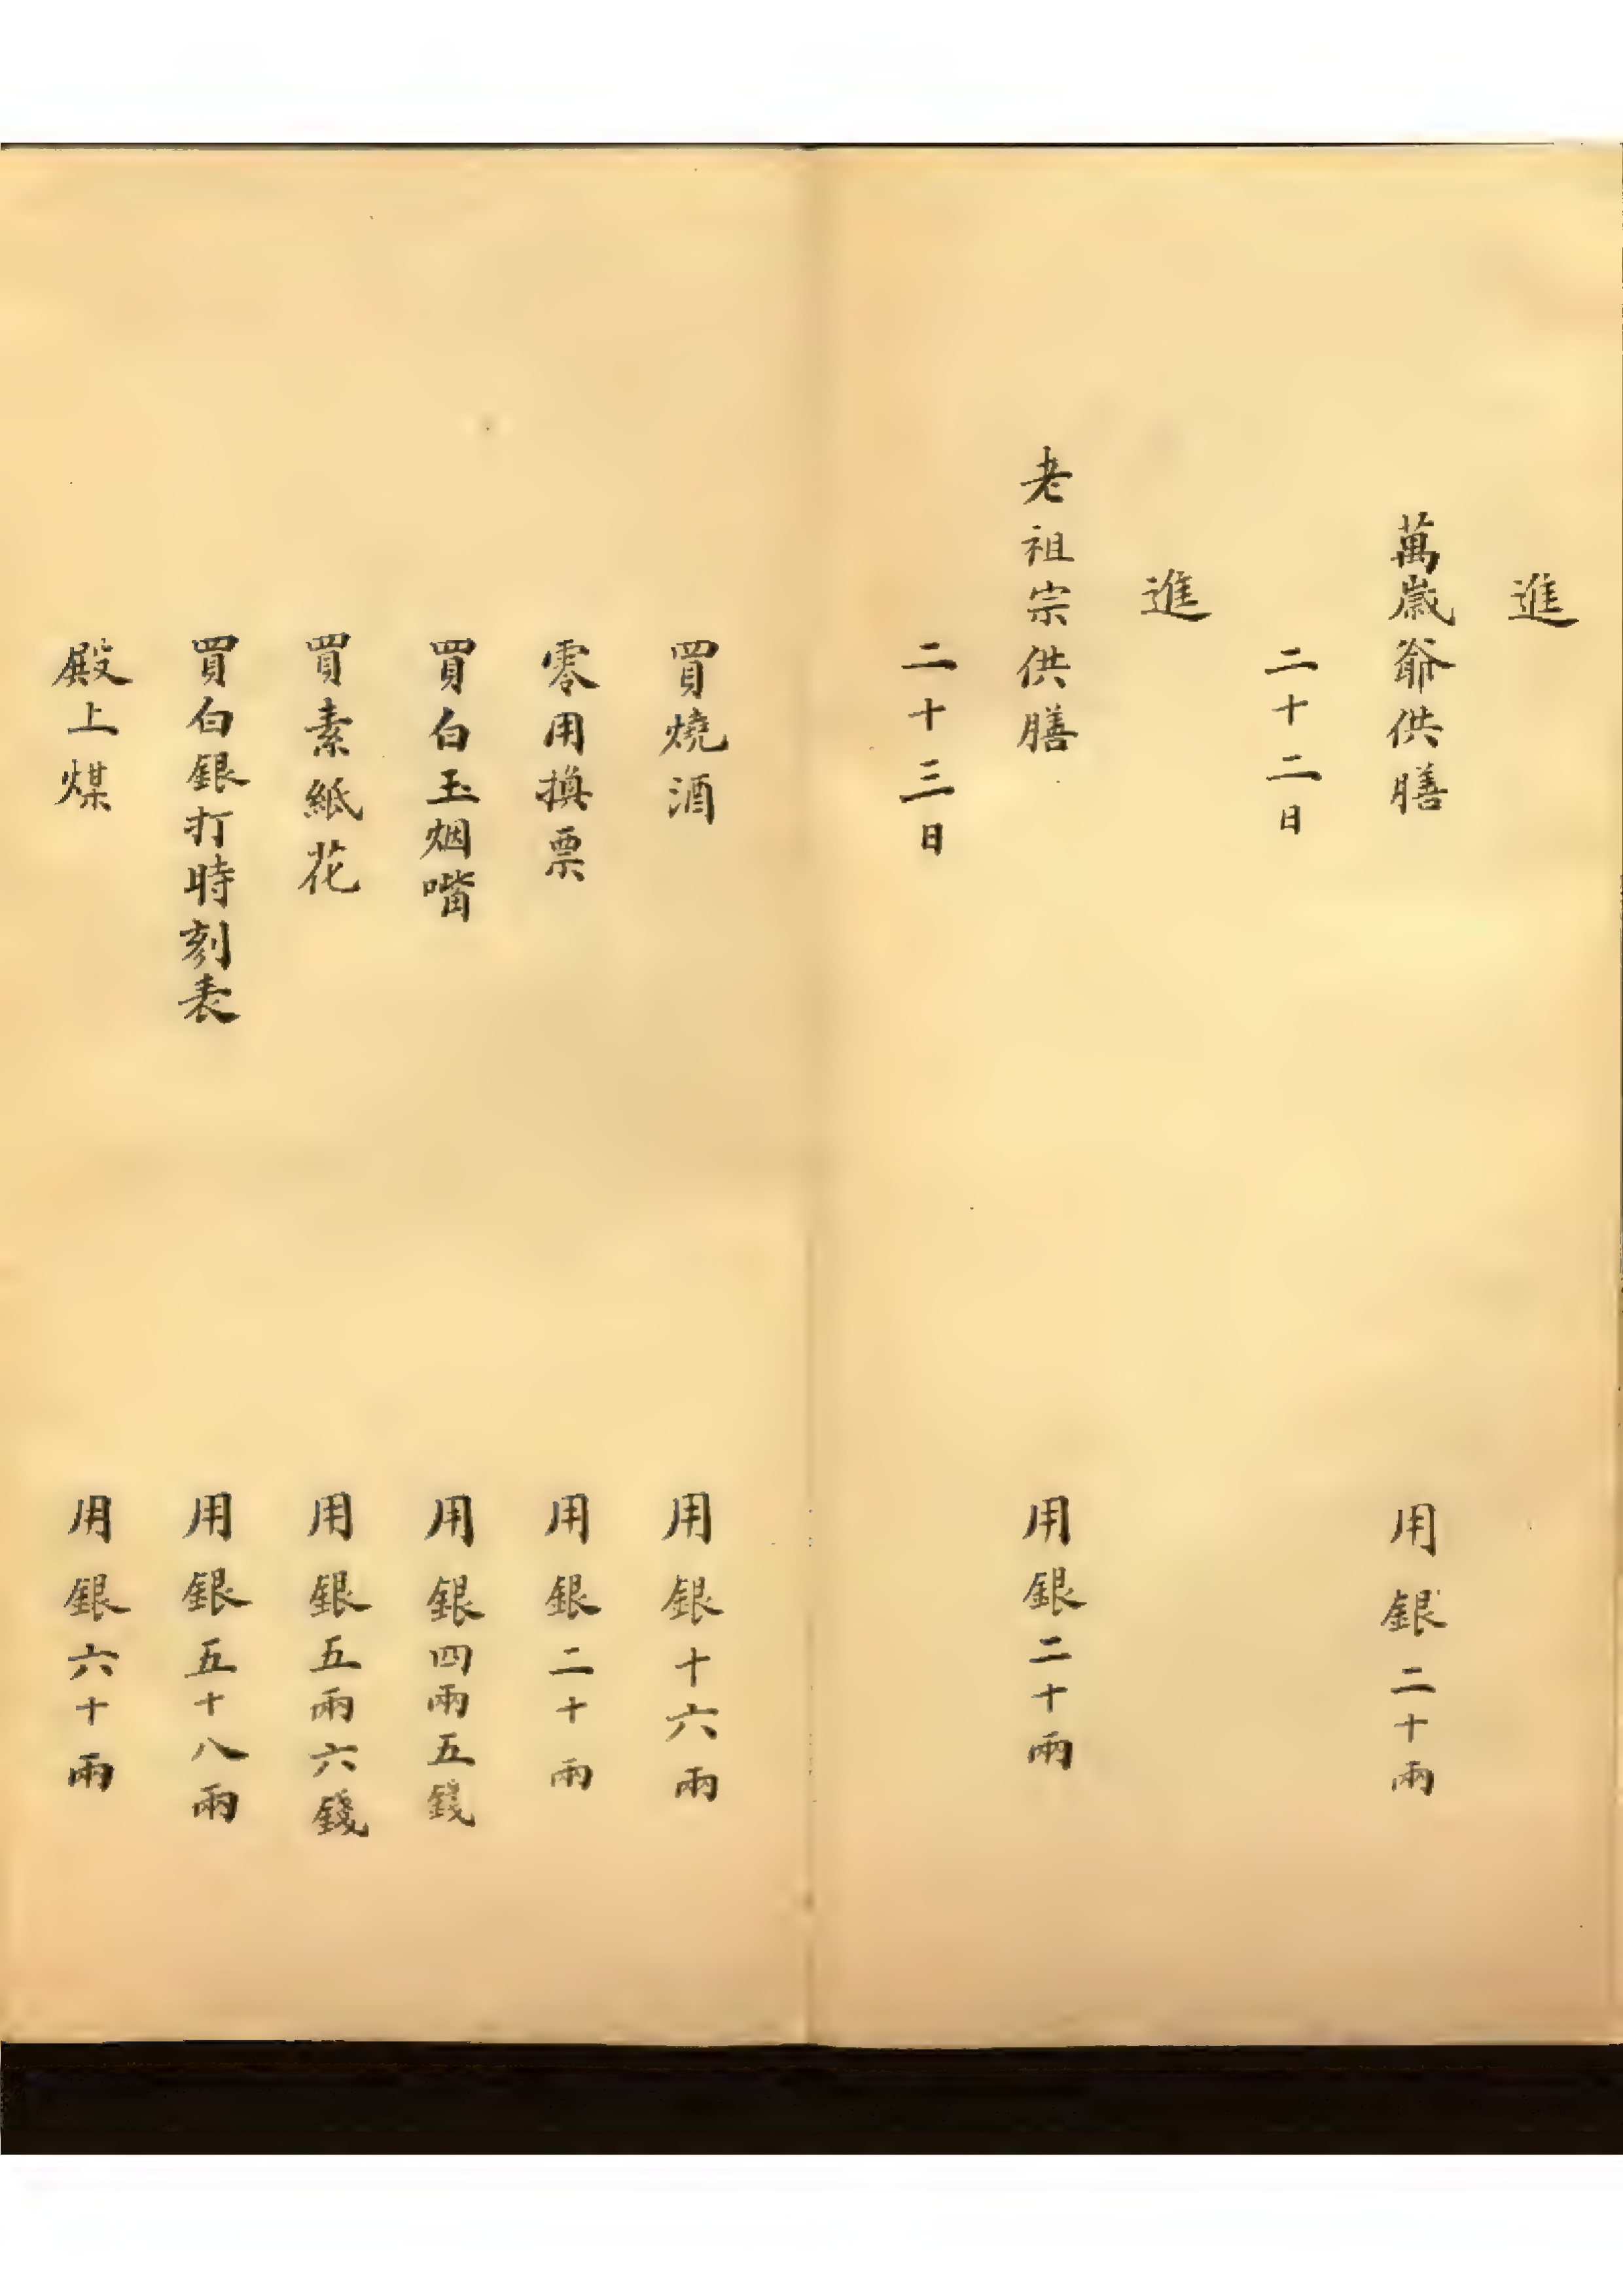 進
萬歲爺供膳 用銀二十兩
二十二日
進
老祖宗供膳 用銀二十兩
二十三日
買燒酒 用銀十六兩
零用換票 用銀二十兩
買白玉烟嘴 用銀四兩五錢
買素紙花 用銀五兩六錢
買白銀打時刻表 用銀五十八兩
殿上煤 用銀六十兩